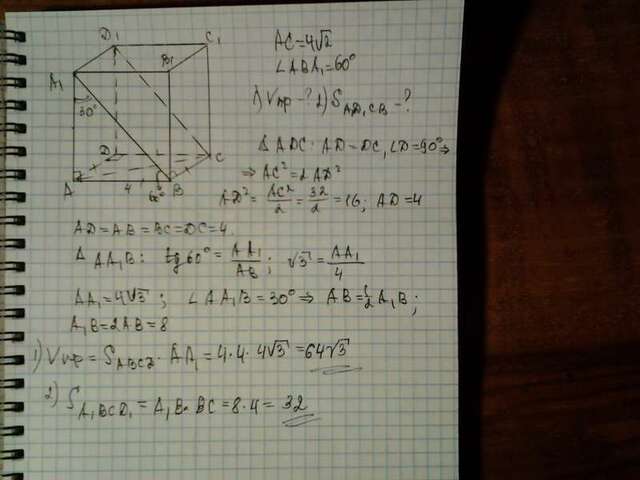 AC=4√2
∠ABA₁=60°
1) Vпр-? 2) S AD₁CB-?
D₁ C₁
B₁
A₁
30°
D C
A 4 60° B
ΔADC: AD=DC, ∠D=90° ⇒
⇒ AC²=2AD²
AD²=AC²/2=32/2=16; AD=4
AD=AB=BC=DC=4.
ΔAA₁B: tg60°=AA₁/AB; √3=AA₁/4
AA₁=4√3; ∠AA₁B=30° ⇒ AB=½A₁B;
A₁B=2AB=8
1) Vпр=S ABCD·AA₁=4·4·4√3=64√3
2) S A₁BCD₁=A₁B·BC=8·4=32